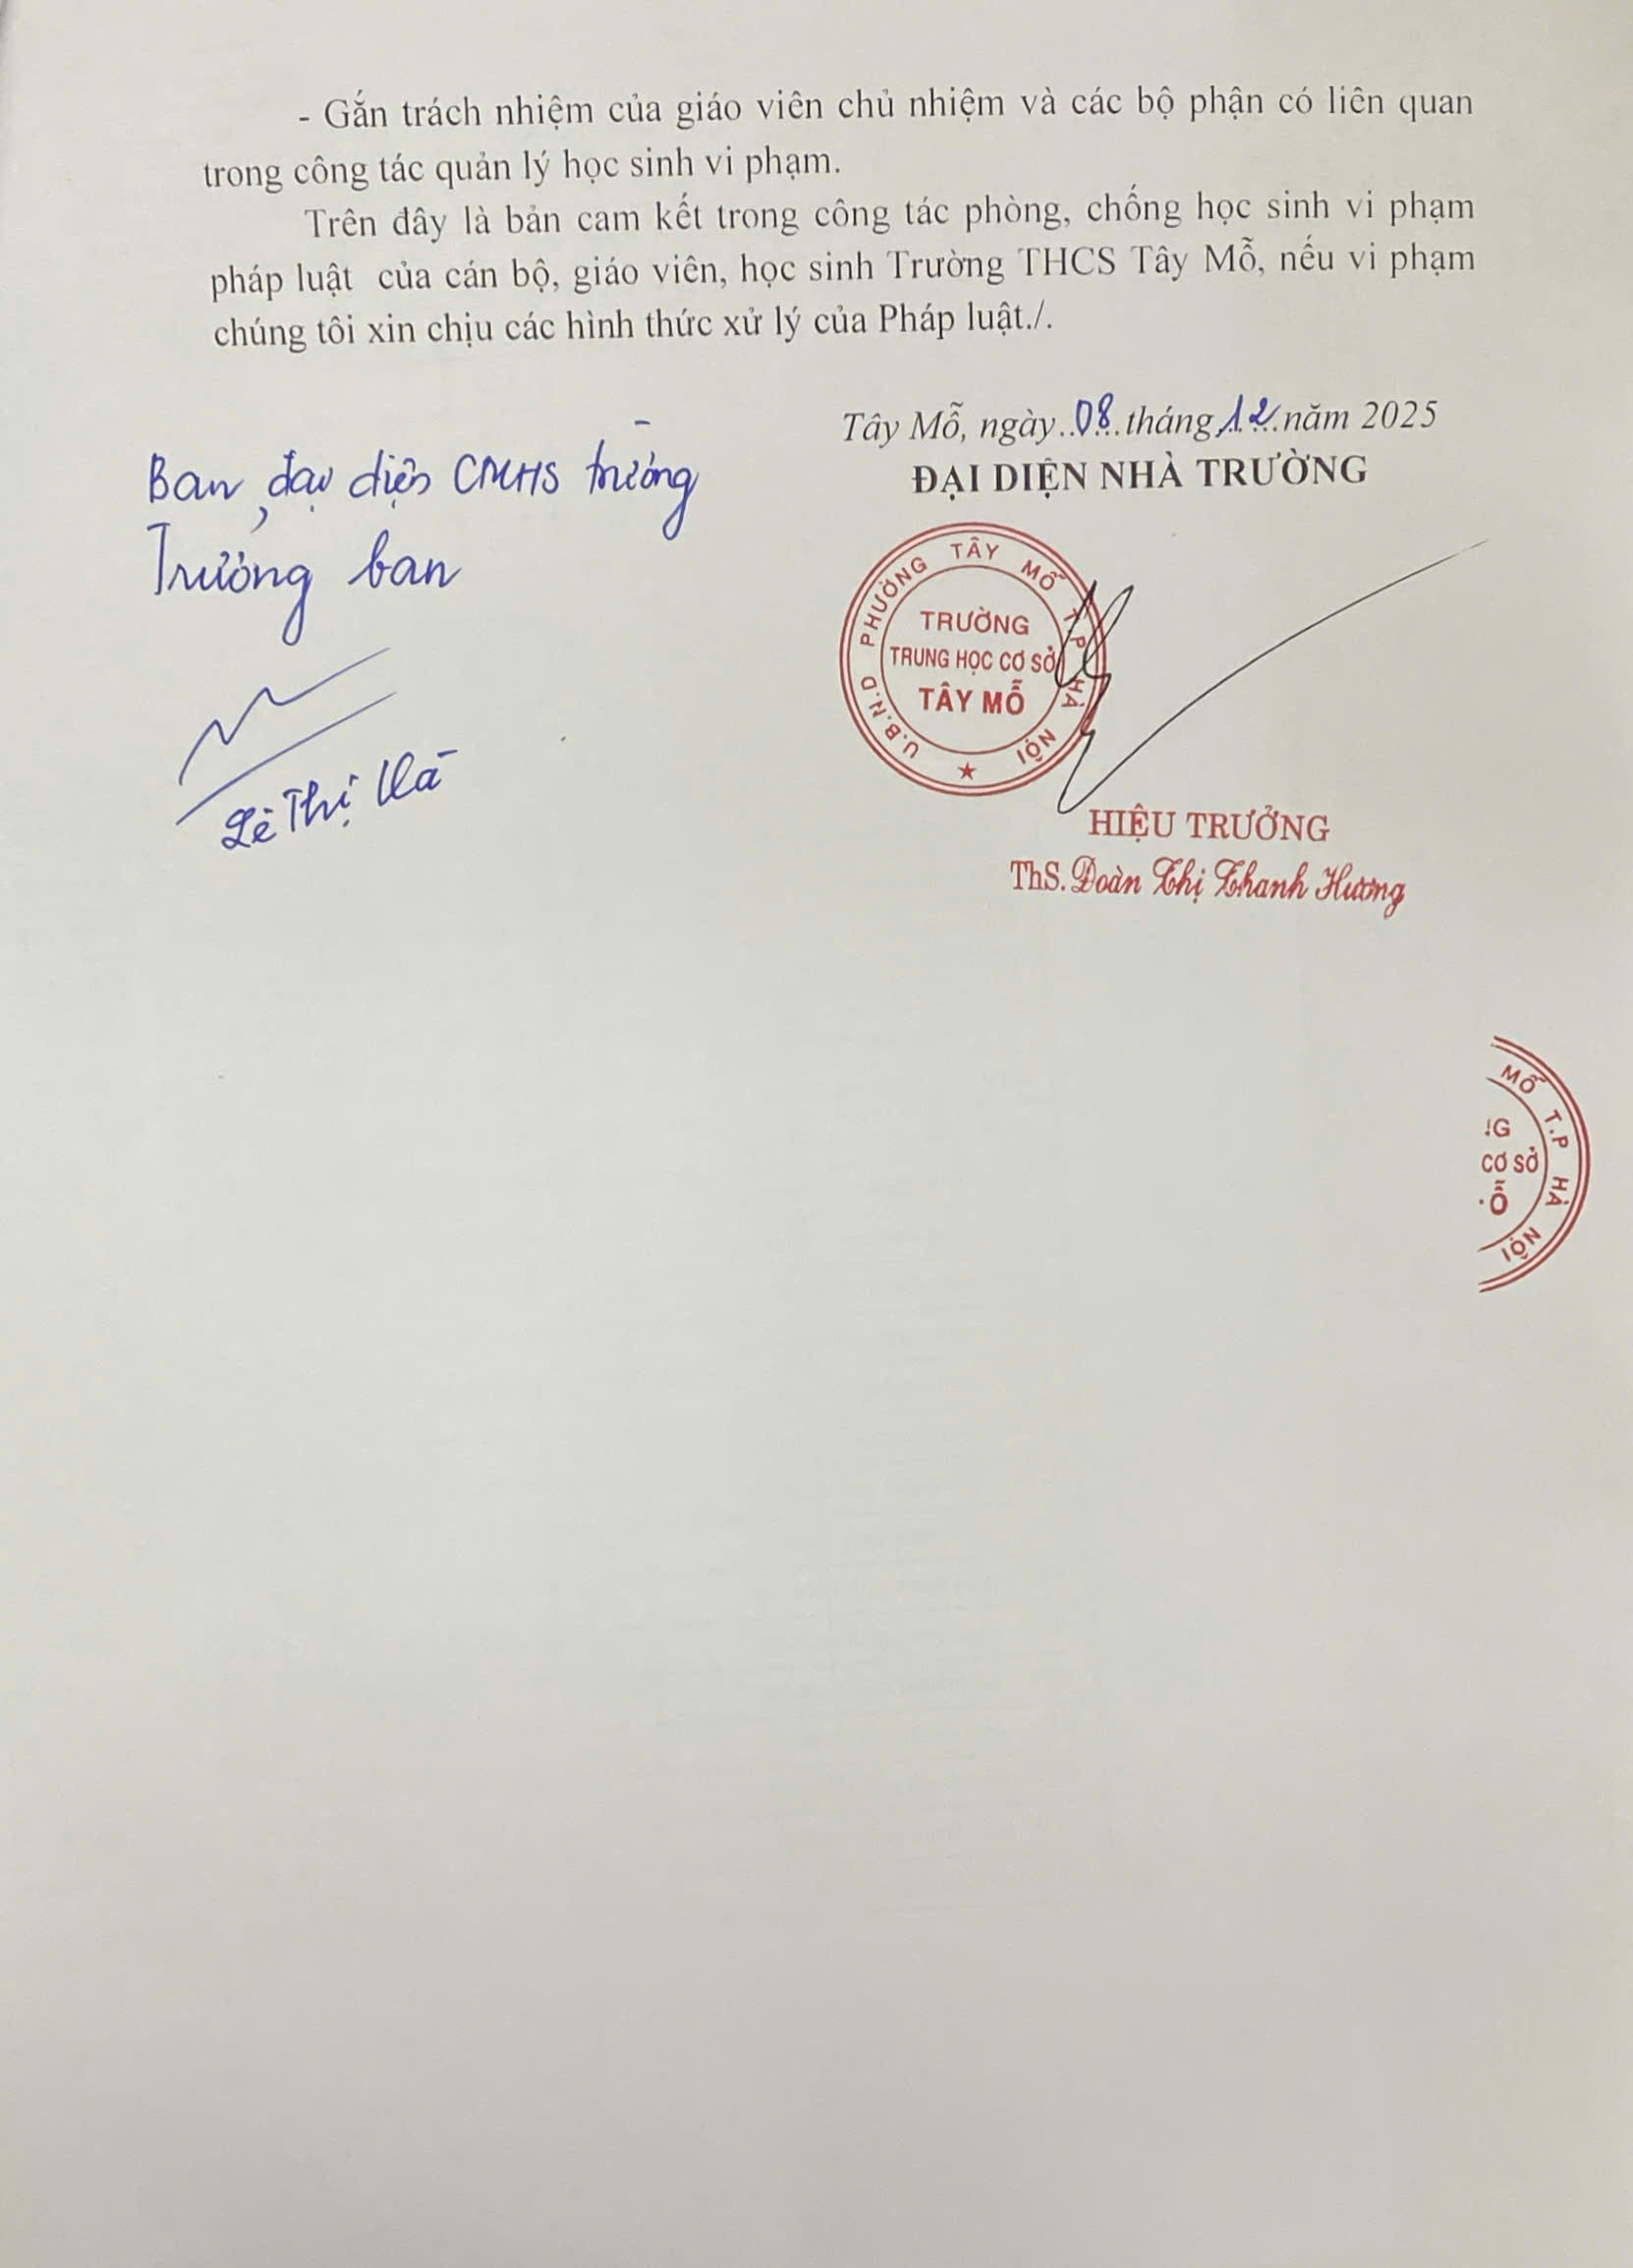 - Gắn trách nhiệm của giáo viên chủ nhiệm và các bộ phận có liên quan
trong công tác quản lý học sinh vi phạm.
Trên đây là bản cam kết trong công tác phòng, chống học sinh vi phạm
pháp luật của cán bộ, giáo viên, học sinh Trường THCS Tây Mỗ, nếu vi phạm
chúng tôi xin chịu các hình thức xử lý của Pháp luật./.
Tây Mỗ, ngày..08..tháng.12.năm 2025
ĐẠI DIỆN NHÀ TRƯỜNG
Ban đại diện CMHS trường
Trưởng ban
Lê Thị
U.B.N.D PHƯỜNG TÂY MỖ T.P HÀ NỘI
TRƯỜNG
TRUNG HỌC CƠ SỞ
TÂY MỖ
HIỆU TRƯỞNG
ThS. Đoàn Thị Thanh Hương
MỖ T.P HÀ NỘI
CƠ SỞ